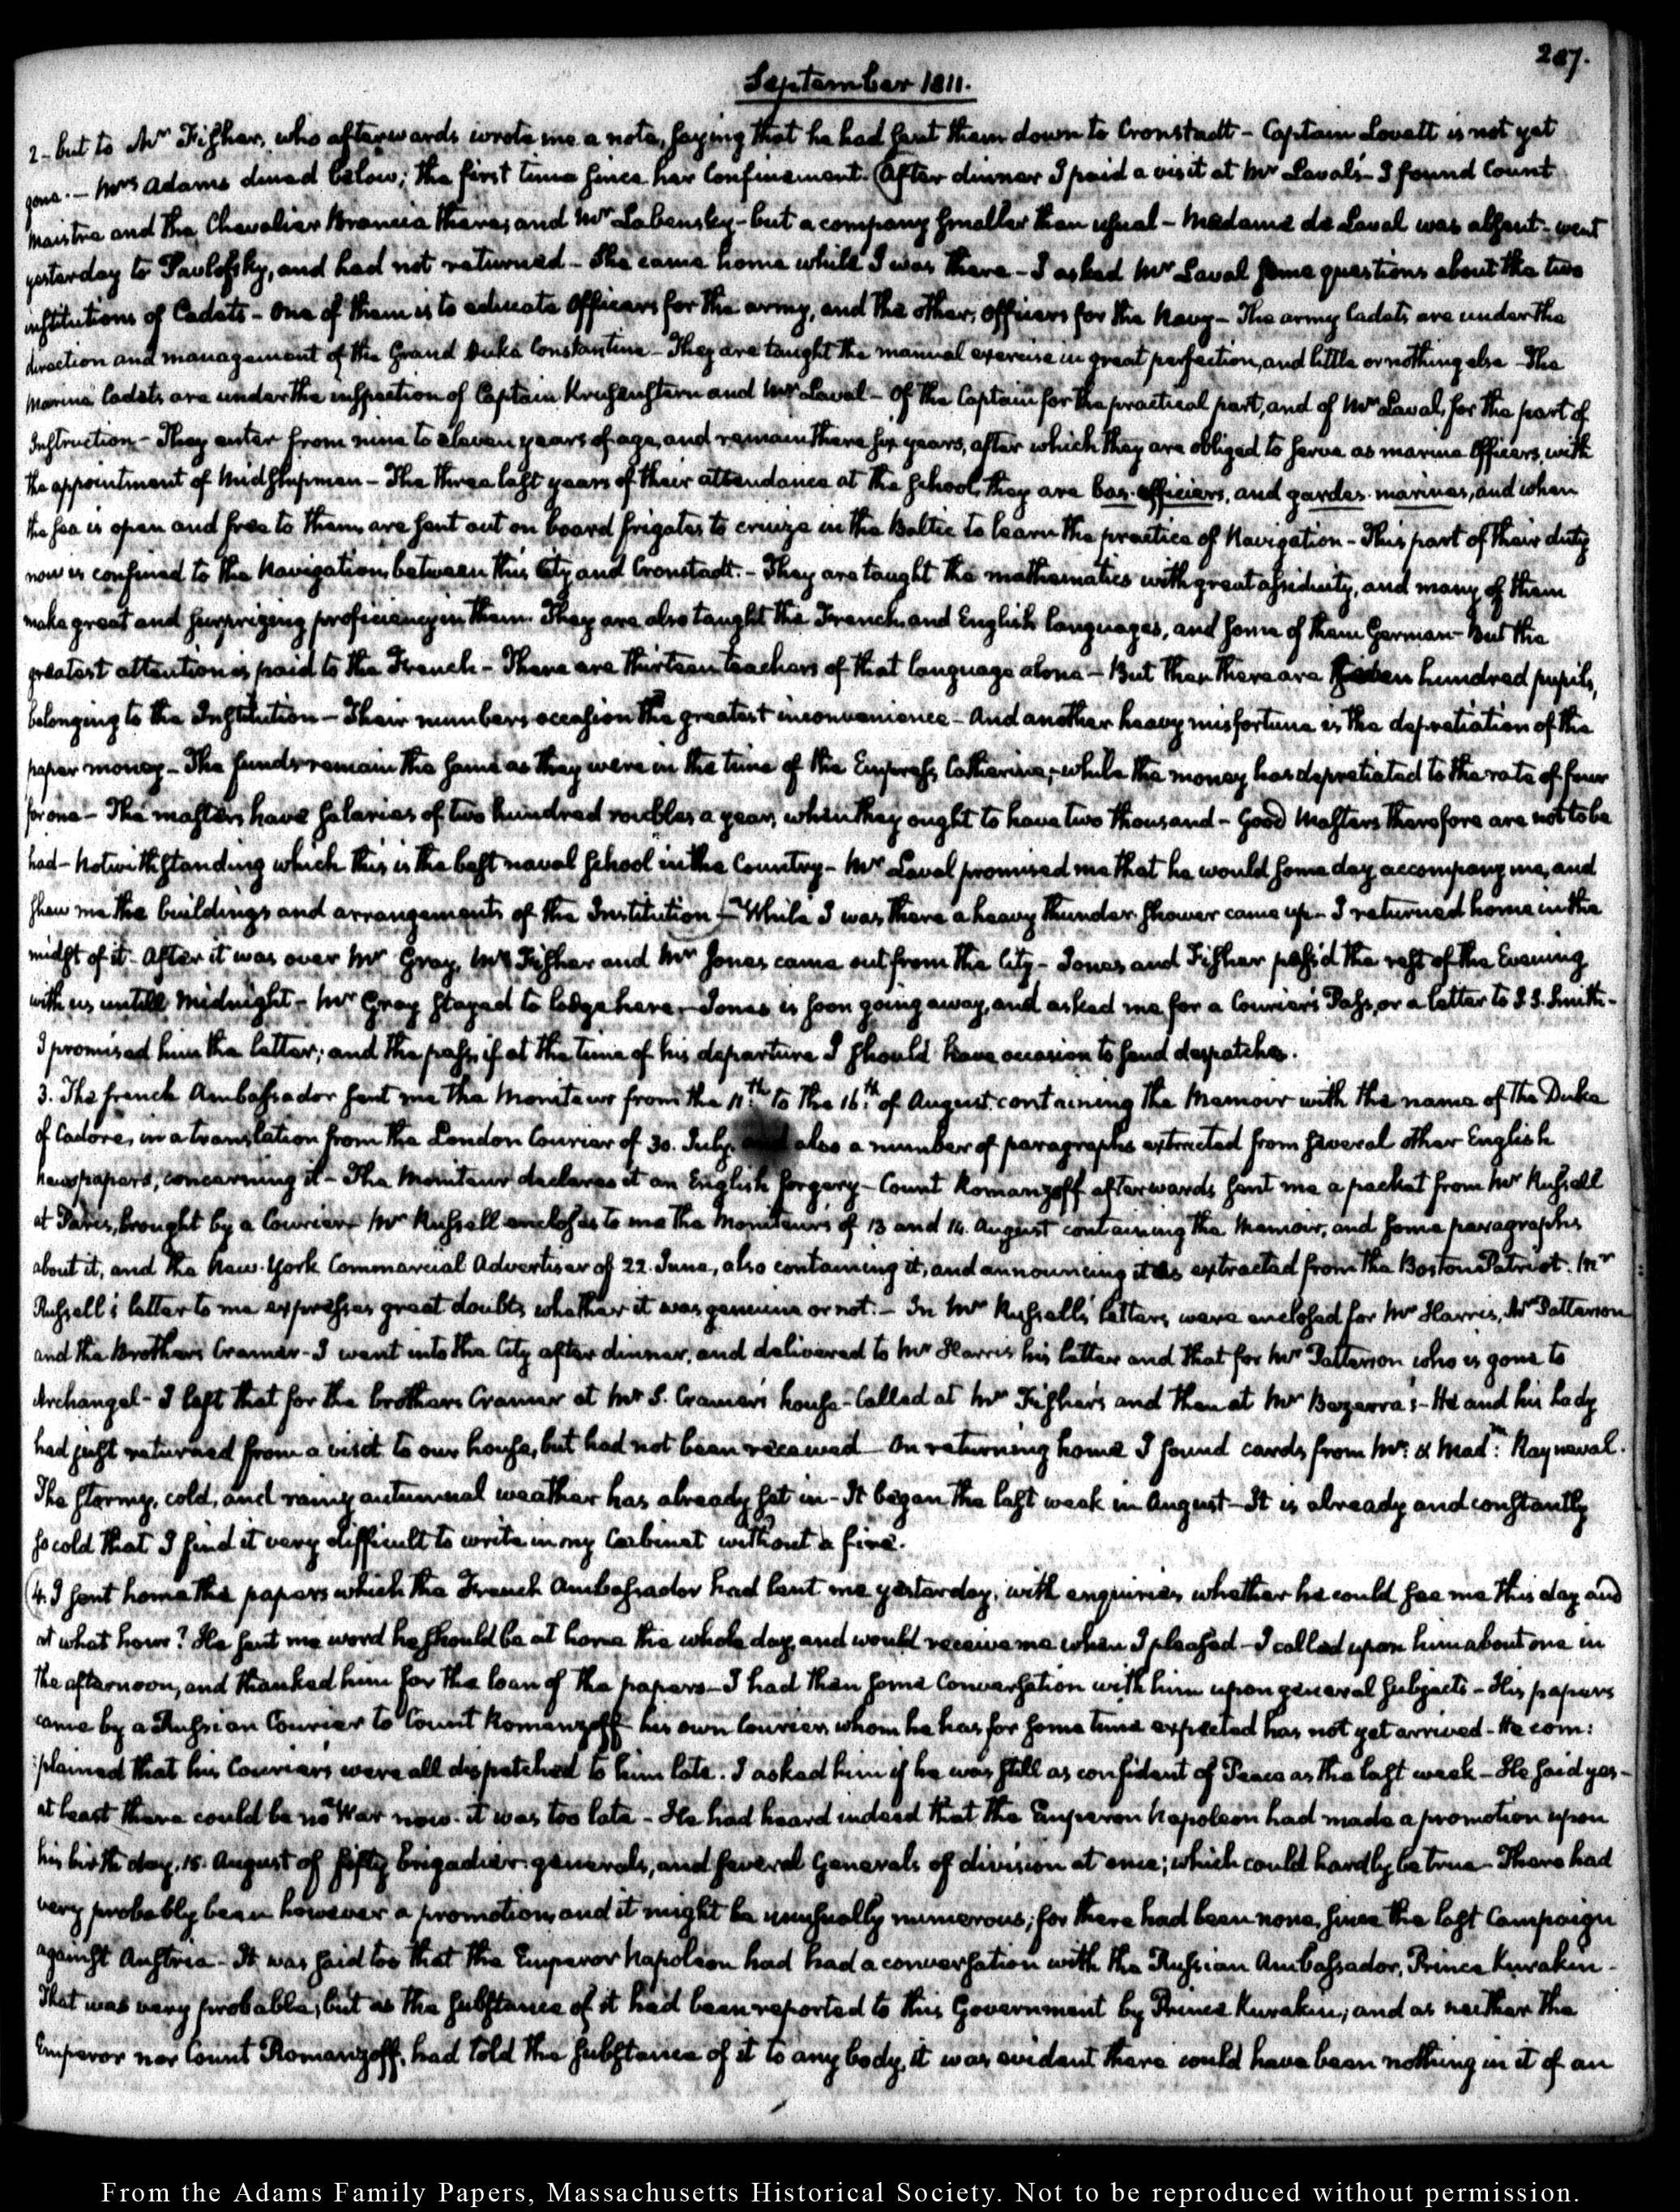 287.
September 1811.
2- but to Mr Fisher, who afterwards wrote me a note, saying that he had sent them down to Cronstadt - Captain Lovett is not yet
gone. - Mrs Adams dined below; the first time since her Confinement. (After dinner I paid a visit at Mr Laval's - I found Count
Maistre and the Chevalier Brancia there; and Mr Labensky - but a company smaller than usual - Madame de Laval was absent - went
yesterday to Pavlofsky, and had not returned - She came home while I was there - I asked Mr Laval some questions about the two
institutions of Cadets - One of them is to educate Officers for the army, and the other, officers for the Navy - The army Cadets are under the
direction and management of the Grand Duke Constantine - They are taught the manual exercise in great perfection, and little or nothing else - The
Marine Cadets are under the inspection of Captain Krusenstern and Mr Laval - Of the Captain for the practical part, and of Mr Laval, for the part of
Instruction - They enter from nine to eleven years of age, and remain there six years, after which they are obliged to serve as marine Officers, with
the appointment of Midshipmen - The three last years of their attendance at the school, they are bas-officiers, and gardes-marines, and when
the sea is open and free to them, are sent out on board frigates to cruize in the Baltic to learn the practice of Navigation - This part of their duty
now is confined to the Navigation, between this City and Cronstadt. - They are taught the mathematics with great assiduity, and many of them
make great and surprizing proficiency in them. They are also taught the French, and English languages, and some of them German - But the
greatest attention is paid to the French - There are thirteen teachers of that language alone - But then there are hundred pupils,
belonging to the Institution - Their numbers occasion the greatest inconvenience - And another heavy misfortune is the depretiation of the
paper money - The funds remain the same as they were in the time of the Empress Catherine; while the money has depretiated to the rate of four
for one - The masters have salaries of two hundred roubles a year, when they ought to have two thousand - Good Masters therefore are not to be
had - Notwithstanding which this is the best naval school in the Country - Mr Laval promised me that he would some day accompany me, and
shew me the buildings and arrangements of the Institution - While I was there a heavy thunder-shower came up - I returned home in the
midst of it - After it was over Mr Gray, Mr Fisher and Mr Jones came out from the City - Jones and Fisher pass'd the rest of the Evening
with us untill Midnight - Mr Gray stayed to lodge here. - Jones is soon going away, and asked me for a Courier's Pass, or a letter to J. S. Smith -
I promised him the letter; and the pass, if at the time of his departure I should have occasion to send despatches.
3. The french Ambassador sent me the Moniteurs from the 11th to the 16th of August. containing the Memoir with the name of the Duke
of Cadore, in a translation from the London Courier of 30. July, and also a number of paragraphs extracted from several other English
newspapers, concerning it - The Moniteur declares it an English forgery - Count Romanzoff afterwards sent me a packet from Mr Russell
at Paris, brought by a Courier - Mr Russell encloses to me the Moniteurs of 13 and 14. August containing the Memoir, and some paragraphs
about it, and the New-York Commercial Advertiser of 22. June, also containing it, and announcing it as extracted from the Boston Patriot. Mr
Russell's letter to me expresses great doubts whether it was genuine or not. - In Mr Russell's letters were enclosed for Mr Harris, Mr Patterson
and the Brothers Cramer - I went into the City after dinner, and delivered to Mr Harris his letter and that for Mr Patterson who is gone to
Archangel - I left that for the brothers Cramer at Mr S. Cramer's house - Called at Mr Fisher's and then at Mr Bezerra's - He and his Lady
had just returned from a visit to our house, but had not been received - On returning home I found cards from Mr: & Made: Rayneval.
The stormy, cold, and rainy autumnal weather has already set in - It began the last week in August - It is already and constantly
so cold that I find it very difficult to write in my Cabinet without a fire.
(4. I sent home the papers which the French Ambassador had lent me yesterday, with enquiries whether he could see me this day and
at what hour? He sent me word he should be at home the whole day, and would receive me when I pleased - I called upon him about one in
the afternoon, and thanked him for the loan of the papers - I had then some Conversation with him upon general subjects - His papers
came by a Russian Courier to Count Romanzoff - his own Courier, whom he has for some time expected has not yet arrived - He com:
:plained that his Couriers were all dispatched to him late. I asked him if he was still as confident of Peace as the last week - He said yes -
at least there could be no War now - it was too late - He had heard indeed that the Emperor Napoleon had made a promotion upon
his birth day, 15. August of fifty brigadier-generals, and several Generals of division at once; which could hardly be true - There had
very probably been however a promotion, and it might be unusually numerous; for there had been none, since the last Campaign
against Austria - It was said too that the Emperor Napoleon had had a conversation with the Russian Ambassador, Prince Kurakin -
That was very probable; but as the substance of it had been reported to this Government by Prince Kurakin; and as neither the
Emperor nor Count Romanzoff, had told the substance of it to any body, it was evident there could have been nothing in it of an
From the Adams Family Papers, Massachusetts Historical Society. Not to be reproduced without permission.